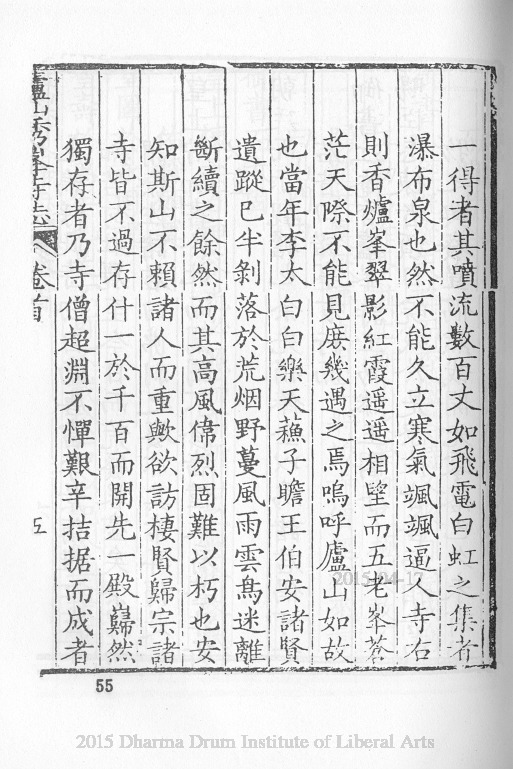 一得者其噴流數百丈如飛電白虹之集者
瀑布泉也然不能久立寒氣颯颯逼人寺右
則香爐峯翠影紅霞遥遥相望而五老峯蒼
茫天際不能見庶幾遇之焉嗚呼廬山如故
也當年李太白白樂天蘓子瞻王伯安諸賢
遺蹤已半剝落於荒烟野蔓風雨雲鳥迷離
斷續之餘然而其高風偉烈固難以朽也安
知斯山不賴諸人而重歟欲訪棲賢歸宗諸
寺皆不過存什一於千百而開先一殿巋然
獨存者乃寺僧超淵不憚艱辛拮据而成者
廬山秀峯寺志 卷首 五
55
2015-04-17
2015 Dharma Drum Institute of Liberal Arts